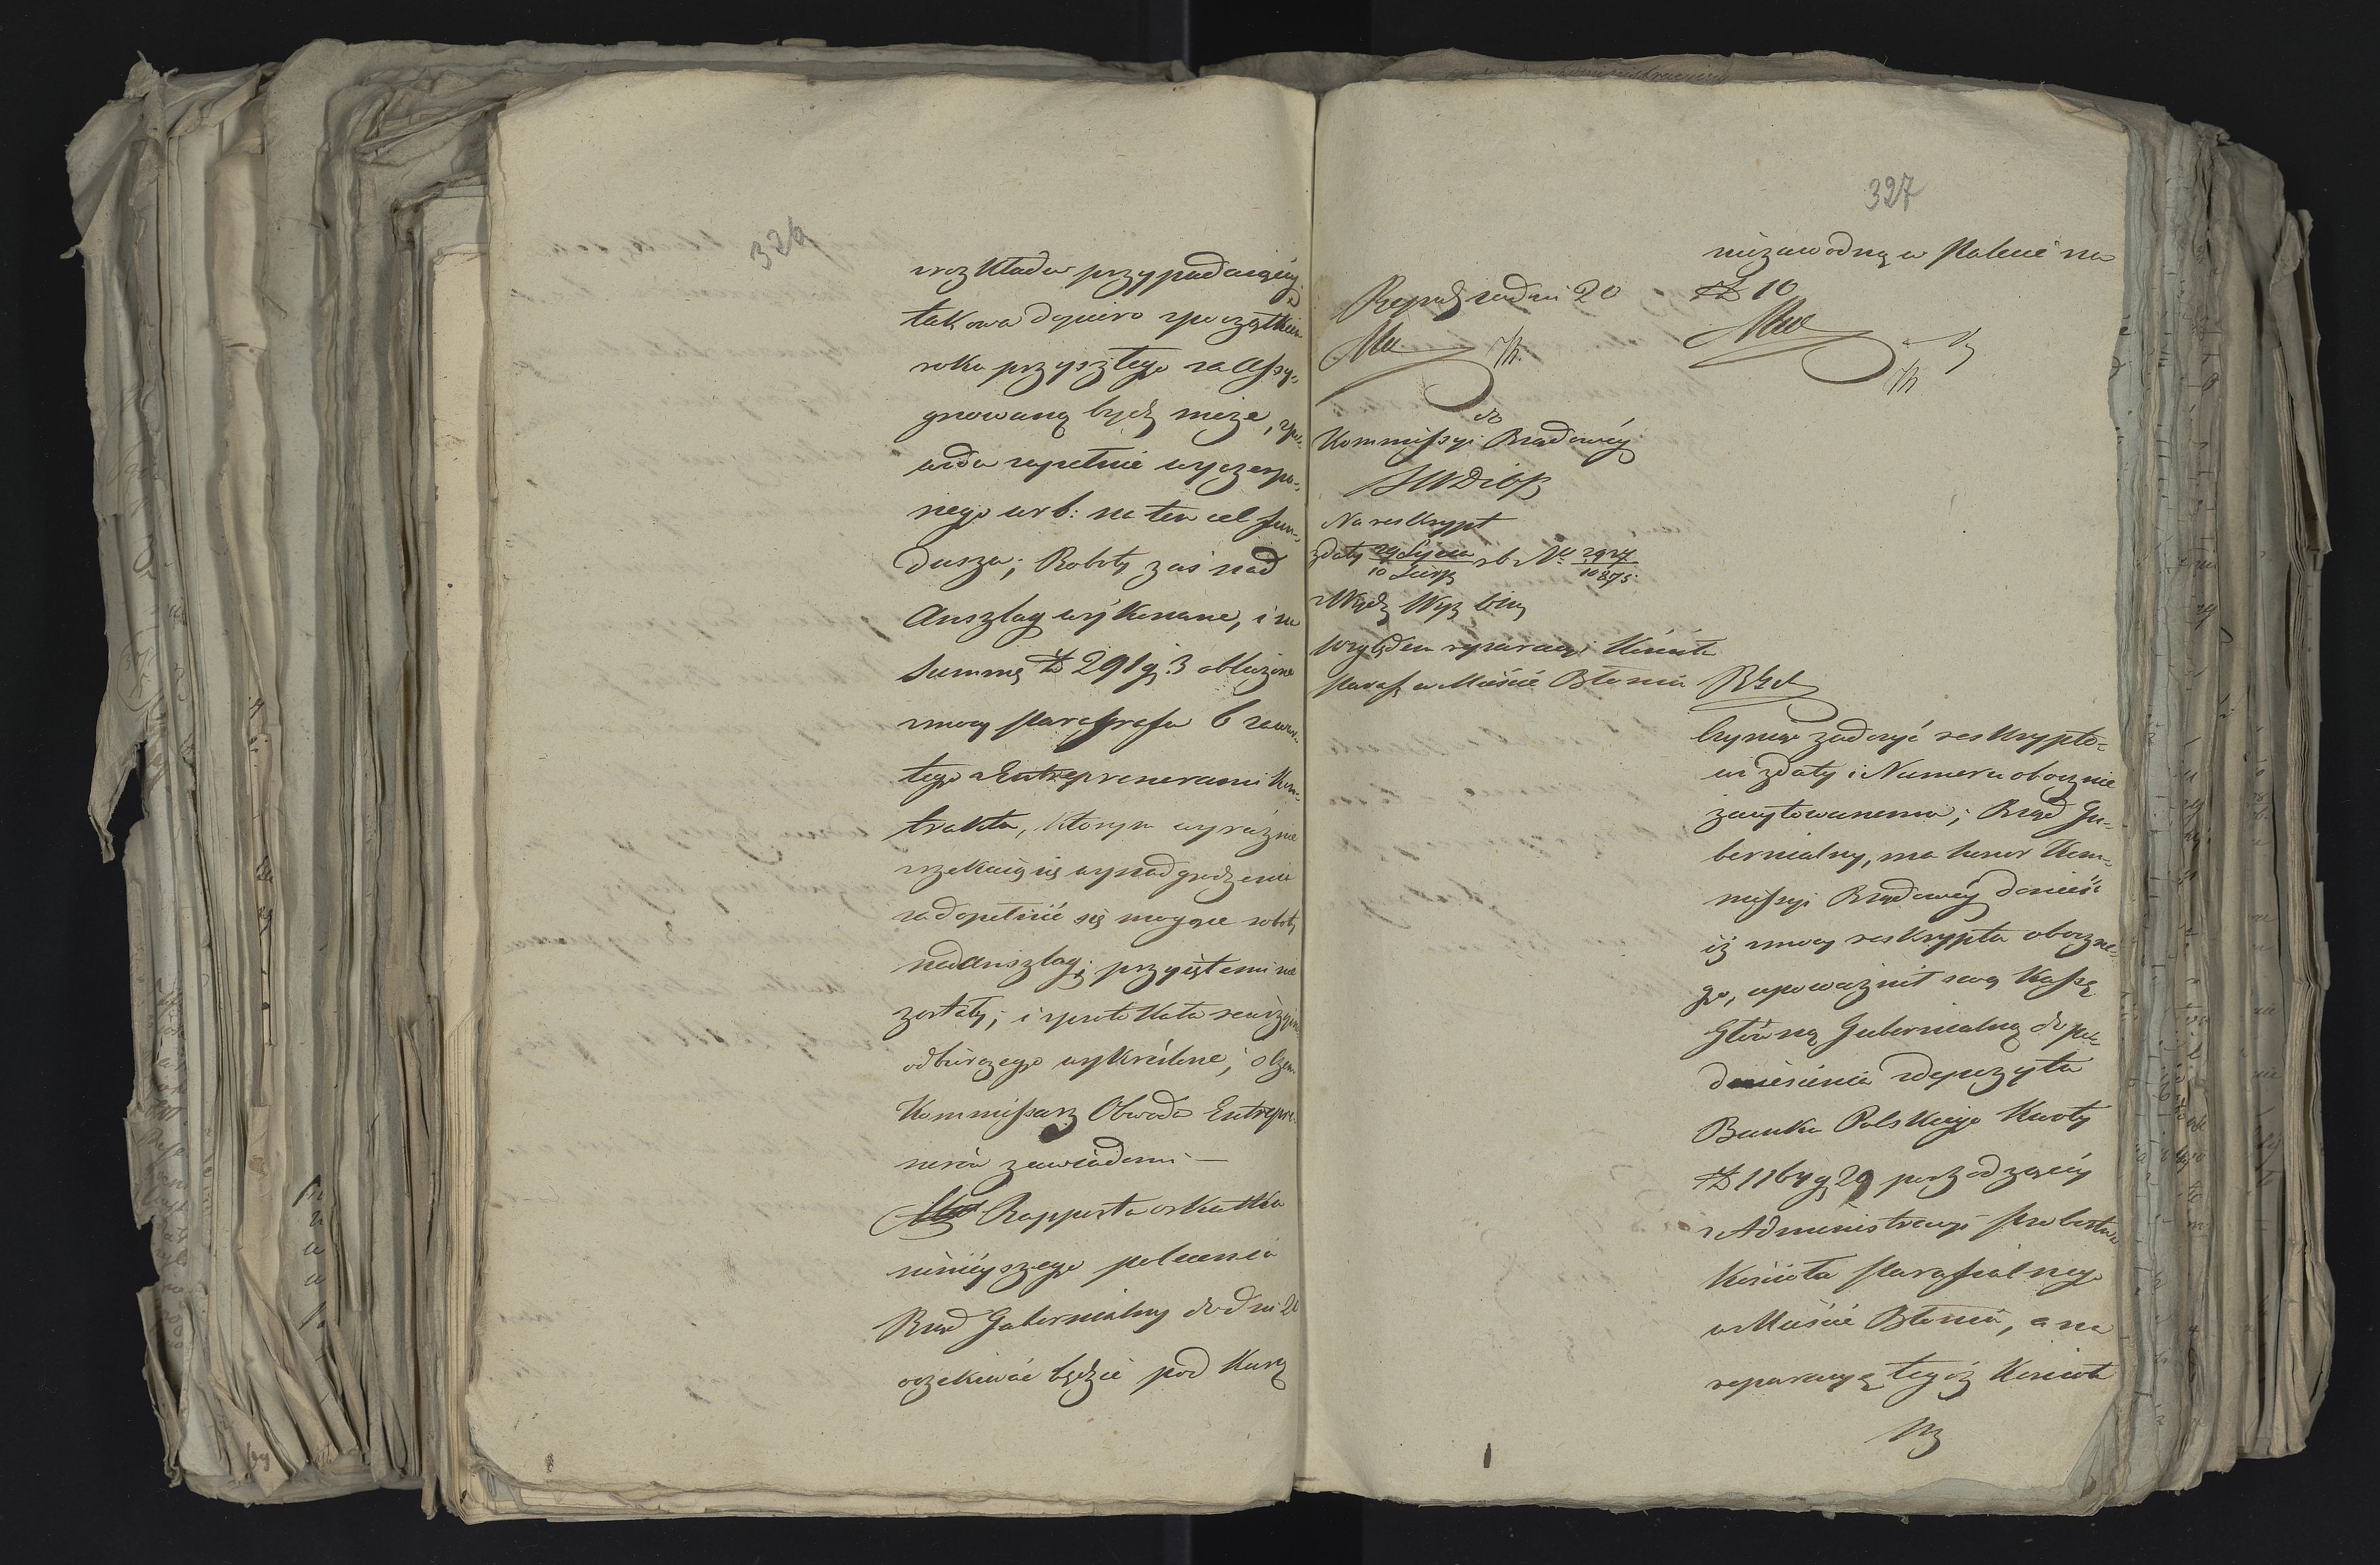 326
w rozkładzie przypadaiącéy
takowa dopiero z początkiem
roku przyszłego zaassy-
gnowaną bydź może, z po-
wodu zupełnie wyczerpa-
nego w r. b: na ten cel fun-
duszu; Roboty zaś nad
Anszlag wykonane, i na
Summę Zł 291 g. 3 obliczone
z mocy paragrafu 6 zawar-
tego z Entreprenerami Kon-
traktu, którym wyraźnie
zrzekaią się wynadgrodzenia
za dopełnić się mogące roboty
nad anszlag; przyiętemi nie
zostały, i z protokułu rewizyino
odbiorczego wykreślone, o czem
Kommissarz Obwodu Entrepre-
nerów zawiadomi —
Rapportu o skutku
ninieyszego polecenia
Rząd Gubernialny do dni 20
oczekiwać będzie pod karą
327
niezawodną w Kalecie na
Zł 10
do
Kommissyi Rządowéy
SWDiOP
Na reskrypt
z daty 29 Lipca / 10 Sierp r. b. No 2927 / 10875
z Wydz Wyz
Względem reparacyi Kościoła
Paraf w Mieście Błoniu
Czyniąc zadosyć reskrypto-
wi z daty i Numeru obocznie
zacytowanemu; Rząd Gu-
bernialny, ma honor Kom-
missyi Rządowéy donieść
iż z mocy reskryptu oboczne-
go, upoważnił swą Kassę
Główną Gubernialną do po-
dniesienia z depozytu
Banku Polskiego Kwoty
Zł 1164 g 29 pochodzącéy
z Administracyi Probostwa
Kościoła Parafialnego
w Mieście Błoniu, a na
reparacyą tegoż Kościoła